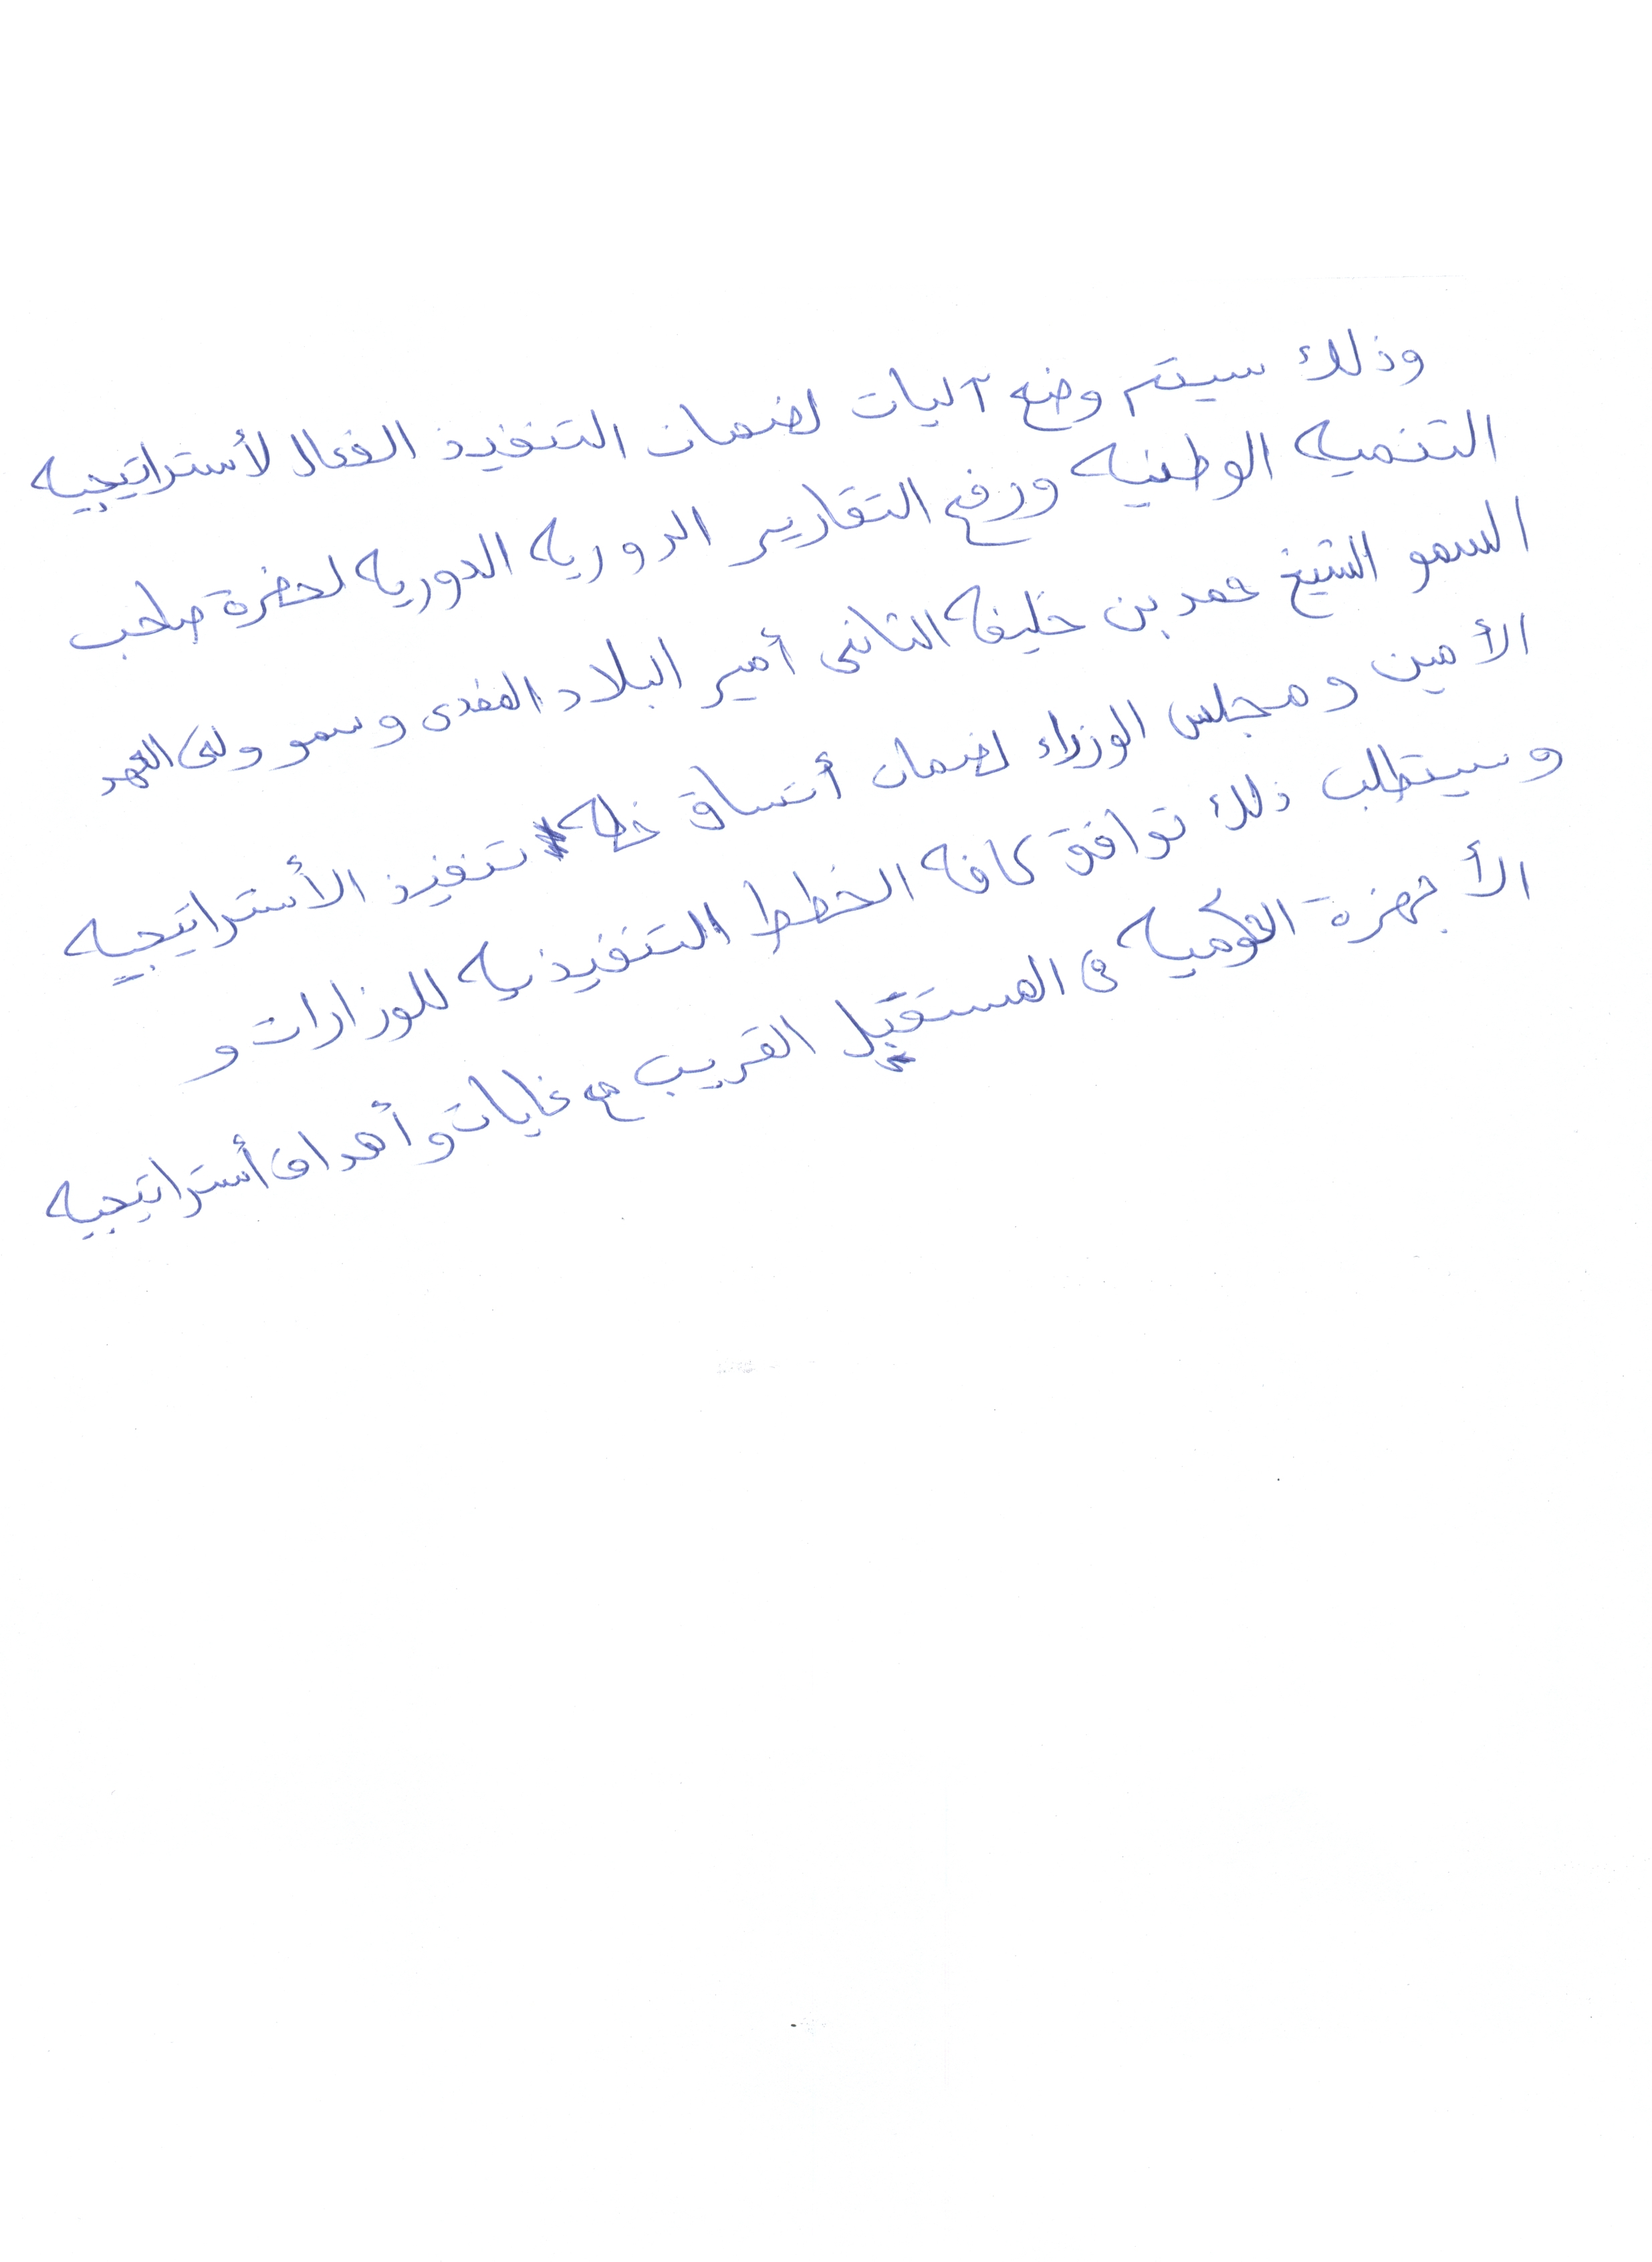 وذلك سيتم وضع آليات لضمان التنفيذ الفعال لأستراتيجيه
التنميه الوطنيه ورفع التقارير الدوريه الدوريه لحضرة صاحب
السمو الشيخ حمد بن خليفه الثانى أمير البلاد المفدى وسمو ولى العهد
الأمين ومجلس الوزراء لضمان أتساق خطه تنفيذ الأستراتيجيه
وسيتطلب ذلك توافق كافه الخطط التنفيذيه للوزارات و
الأجهزة الحكوميه فى المستقبل القريب مع غايات وأهداف أستراتيجيه